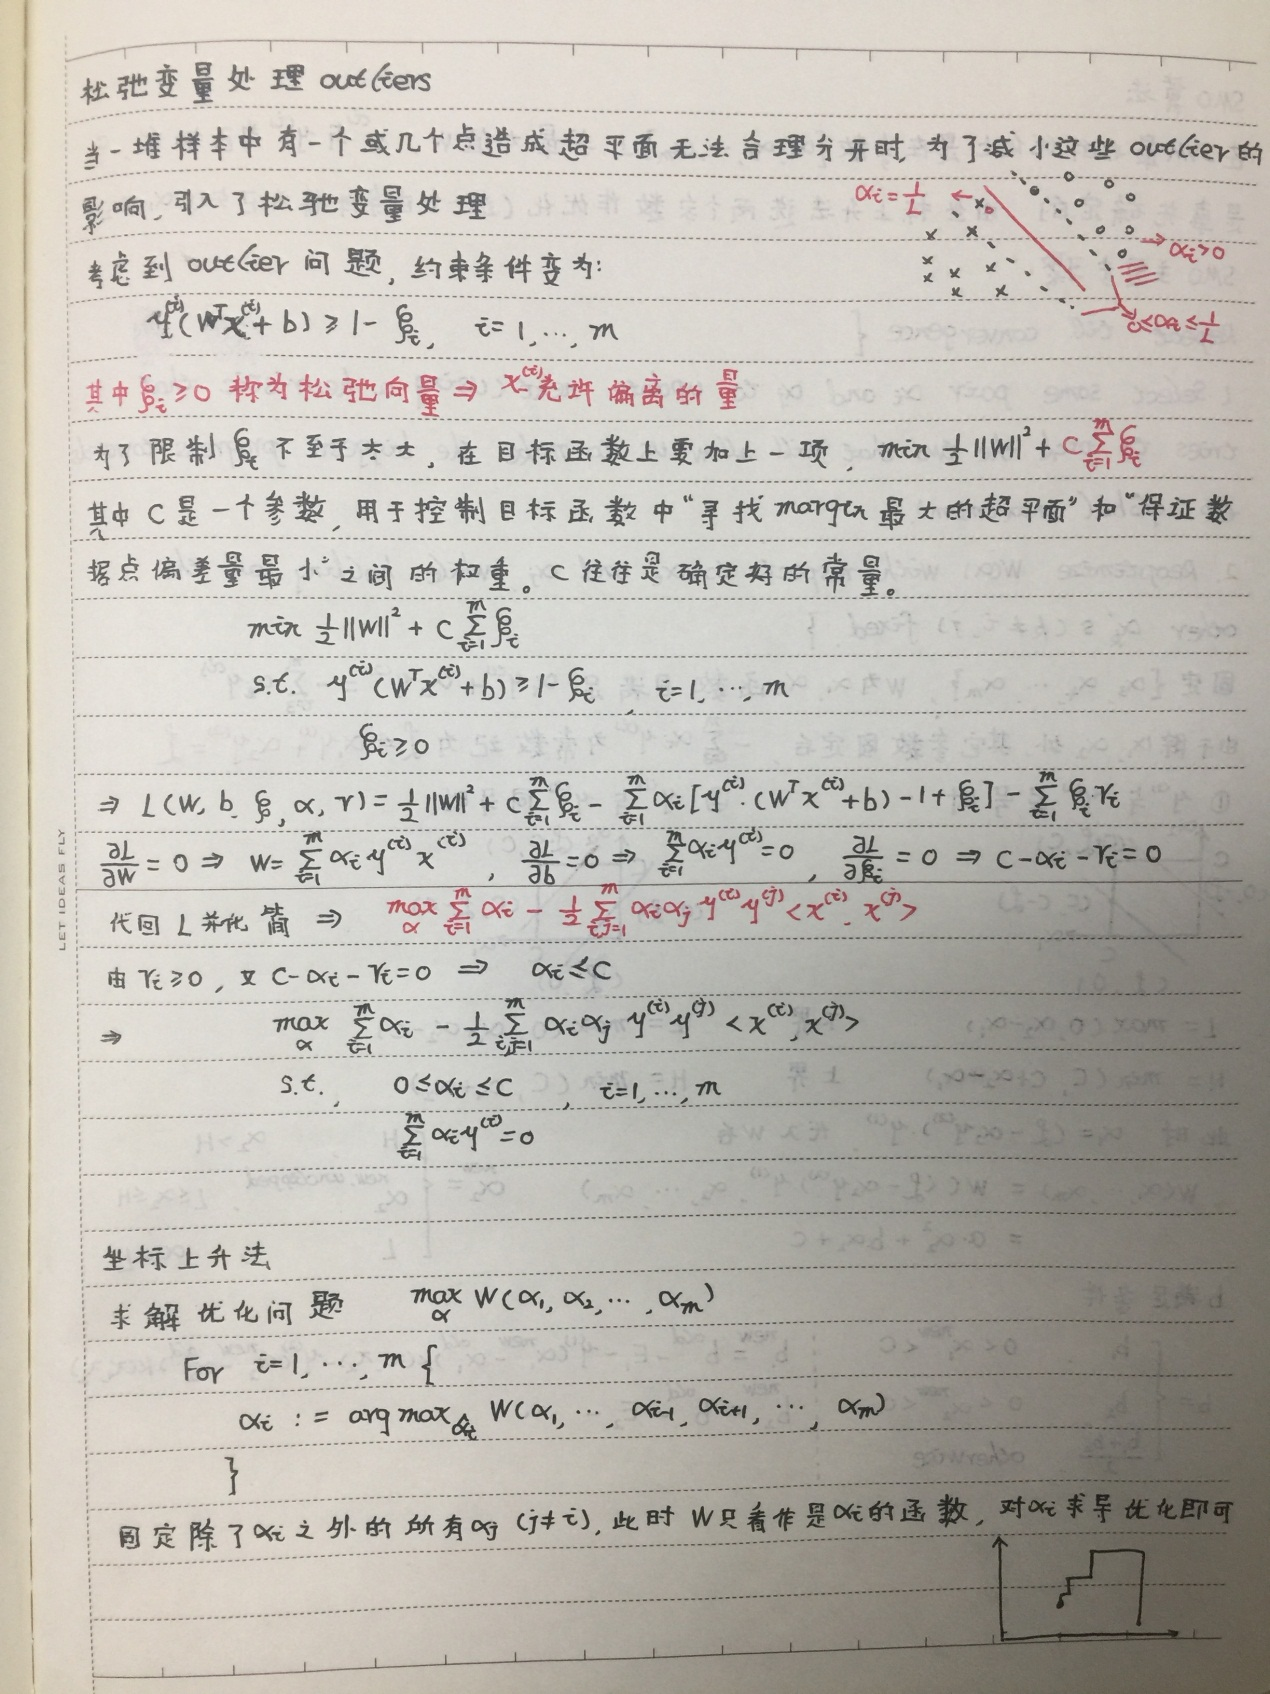 松弛变量处理 outliers
当一堆样本中有一个或几个点造成超平面无法合理分开时,为了减小这些 outlier 的
影响,引入了松弛变量处理
αi = 1/L
αi>0
0≤αi≤1/L
考虑到 outlier 问题,约束条件变为:
y^(i)(W^T x^(i) + b) ≥ 1 - ξi, i=1, ..., m
其中 ξi ≥ 0 称为松弛向量 ⇒ x^(i) 允许偏离的量
为了限制 ξi 不至于太大,在目标函数上要加上一项, min ½||W||² + C Σ_{i=1}^m ξi
其中 C 是一个参数,用于控制目标函数中“寻找 margin 最大的超平面”和“保证数
据点偏差量最小”之间的权重。C 往往是确定好的常量。
min ½||W||² + C Σ_{i=1}^m ξi
s.t. y^(i)(W^T x^(i) + b) ≥ 1 - ξi, i=1, ..., m
ξi ≥ 0
⇒ L(W, b, ξ, α, r) = ½||W||² + C Σ_{i=1}^m ξi - Σ_{i=1}^m αi[y^(i)·(W^T x^(i) + b) - 1 + ξi] - Σ_{i=1}^m ξi·ri
∂L/∂W = 0 ⇒ W = Σ_{i=1}^m αi y^(i) x^(i), ∂L/∂b = 0 ⇒ Σ_{i=1}^m αi y^(i) = 0, ∂L/∂ξi = 0 ⇒ C - αi - ri = 0
代回 L 并化简 ⇒ max_α Σ_{i=1}^m αi - ½ Σ_{i,j=1}^m αi αj y^(i) y^(j) <x^(i), x^(j)>
由 ri ≥ 0, 又 C - αi - ri = 0 ⇒ αi ≤ C
⇒ max_α Σ_{i=1}^m αi - ½ Σ_{i,j=1}^m αi αj y^(i) y^(j) <x^(i), x^(j)>
s.t., 0 ≤ αi ≤ C, i=1, ..., m
Σ_{i=1}^m αi y^(i) = 0
坐标上升法
求解优化问题 max_α W(α1, α2, ..., αm)
For i=1, ..., m {
αi := arg max_α̂i W(α1, ..., αi-1, αi+1, ..., αm)
}
固定除了 αi 之外的所有 αj (j≠i), 此时 W 只看作是 αi 的函数, 对 αi 求导优化即可
LET IDEAS FLY